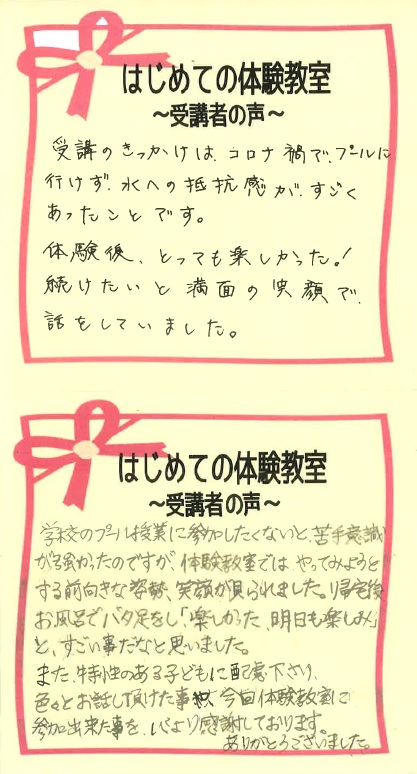 はじめての体験教室
～受講者の声～
受講のきっかけは、コロナ禍で、プールに
行けず、水への抵抗感が、すごく
あったことです。
体験後、とっても楽しかった！
続けたいと満面の笑顔で、
話をしていました。
はじめての体験教室
～受講者の声～
学校のプール授業に参加したくないと、苦手意識
が強かったのですが、体験教室では やってみようと
する前向きな姿勢、笑顔が見られました。帰宅後
お風呂でバタ足をし、「楽しかった、明日も楽しみ」
と、すごい事だなと思いました。
また、特性のある子どもに配慮下さり、
色々とお話して頂けた事 今回体験教室に
参加出来た事を、心より感謝しております。
ありがとうございました。